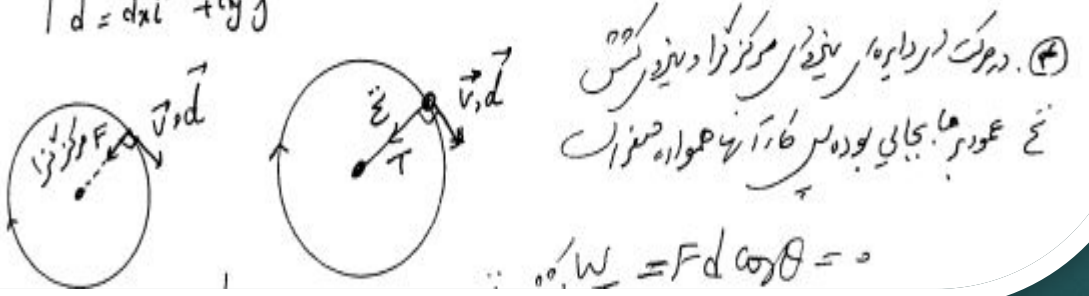 d = dxi + dyj
(*) . در حرکت دایره‌ای نیروی مرکزگرا و نیروی کشش
نخ عمود بر جابجایی بوده پس کار آنها همواره صفر است
v, d
F مرکزگرا
v, d
نخ
T
W = Fd cosθ = 0